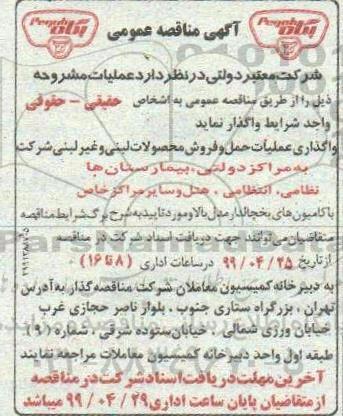 Pegah
پگاه
آگهی مناقصه عمومی
Pegah
پگاه
شرکت معتبر دولتی در نظر دارد عملیات مشروحه
ذیل را از طریق مناقصه عمومی به اشخاص حقیقی - حقوقی
واجد شرایط واگذار نماید
واگذاری عملیات حمل و فروش محصولات لبنی و غیر لبنی شرکت
به مراکز دولتی، بیمارستان ها
نظامی، انتظامی، هتل و سایر مراکز خاص
با کامیون های یخچالدار مدل بالا و مورد تایید به شرح برگ شرایط مناقصه
متقاضیان می توانند جهت دریافت اسناد شرکت در مناقصه
از تاریخ ۹۹/۰۴/۲۵ در ساعات اداری (۸ تا ۱۶)
به دبیرخانه کمیسیون معاملات شرکت مناقصه گذار به آدرس
تهران، بزرگراه ستاری جنوب، بلوار ناصر حجازی غرب
خیابان ورزی شمالی، خیابان ستوده شرقی، شماره (۹)
طبقه اول واحد دبیرخانه کمیسیون معاملات مراجعه نمایند
آخرین مهلت دریافت اسناد شرکت در مناقصه
از متقاضیان پایان ساعت اداری ۹۹/۰۴/۲۹ میباشد